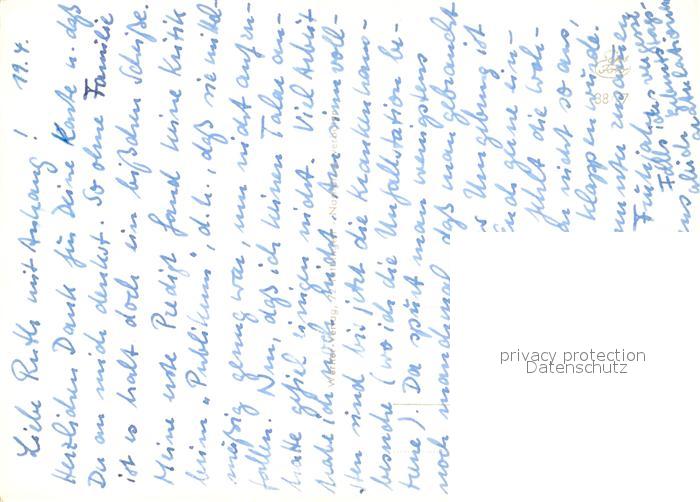 Liebe Ruth mit Anhang! 19.4.
Herzlichen Dank für Deine Karte u. daß
Du an mich denkst. So ohne Familie
ist es halt doch ein bißchen Scheiße.
Meine erste Predigt fand keine Kritik
beim "Publikum", d.h., daß sie mittel-
mäßig genug war, um nicht auf zu-
fallen. Nun, daß ich keinen Talar an-
hatte gefiel einigen nicht. Viel Arbeit
habe ich noch nicht. Am sinnvoll-
sten sind bis jetzt die Krankenhaus-
besuche (wo ich die Unfallstation be-
treue). Da spürt man wenigstens
noch manchmal daß man gebraucht
Umgebung ist
gerne ein-
fehlt die Woh-
nicht so aus,
klappen würde.
Frühjahrs
Falls
privacy protection
Datenschutz